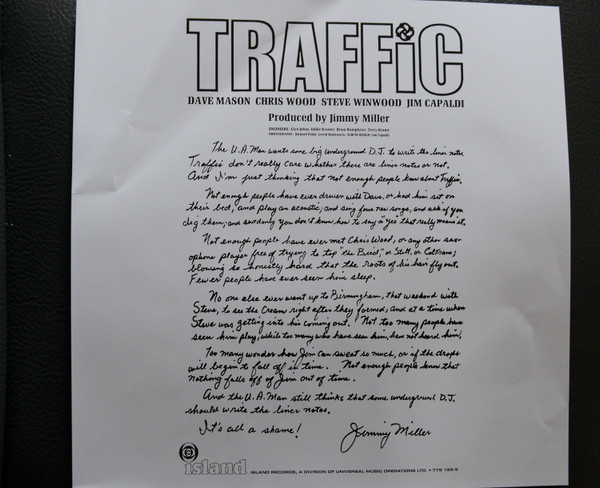 TRAFFIC
DAVE MASON CHRIS WOOD STEVE WINWOOD JIM CAPALDI
Produced by Jimmy Miller
ENGINEERS: Glyn Johns, Eddie Kramer, Brian Humphries, Terry Brown
The U.A. Man wants some big underground D.J. to write the liner notes.
Traffic don't really care whether there are liner notes or not.
And I'm just thinking that not enough people know about Traffic.
Not enough people have ever driven with Dave, or had him sit on
their bed, and play an acoustic, and sing four new songs, and ask if you
dig them, and suddenly you don't know how to say a "yes" that really means it.
Not enough people have ever met Chris Wood, or any other sax-
ophone player free of trying to top "the Bird", or Stitt, or Coltrane;
blowing so honestly hard that the roots of his hair fly out.
Fewer people have ever seen him sleep.
No one else ever went up to Birmingham, that weekend with
Steve, to see the Cream right after they formed, and at a time when
Steve was getting into his coming out. Not too many people have
seen him play, while too many who have seen him, have not heard him.
Too many wonder how Jim can sweat so much, or if the drops
will begin to fall off in time. Not enough people know that
nothing falls off of Jim out of time.
And the U.A. Man still thinks that some underground D.J.
should write the liner notes.
It's all a shame!
Jimmy Miller
island
ISLAND RECORDS, A DIVISION OF UNIVERSAL MUSIC OPERATIONS LTD. • 775 125-5